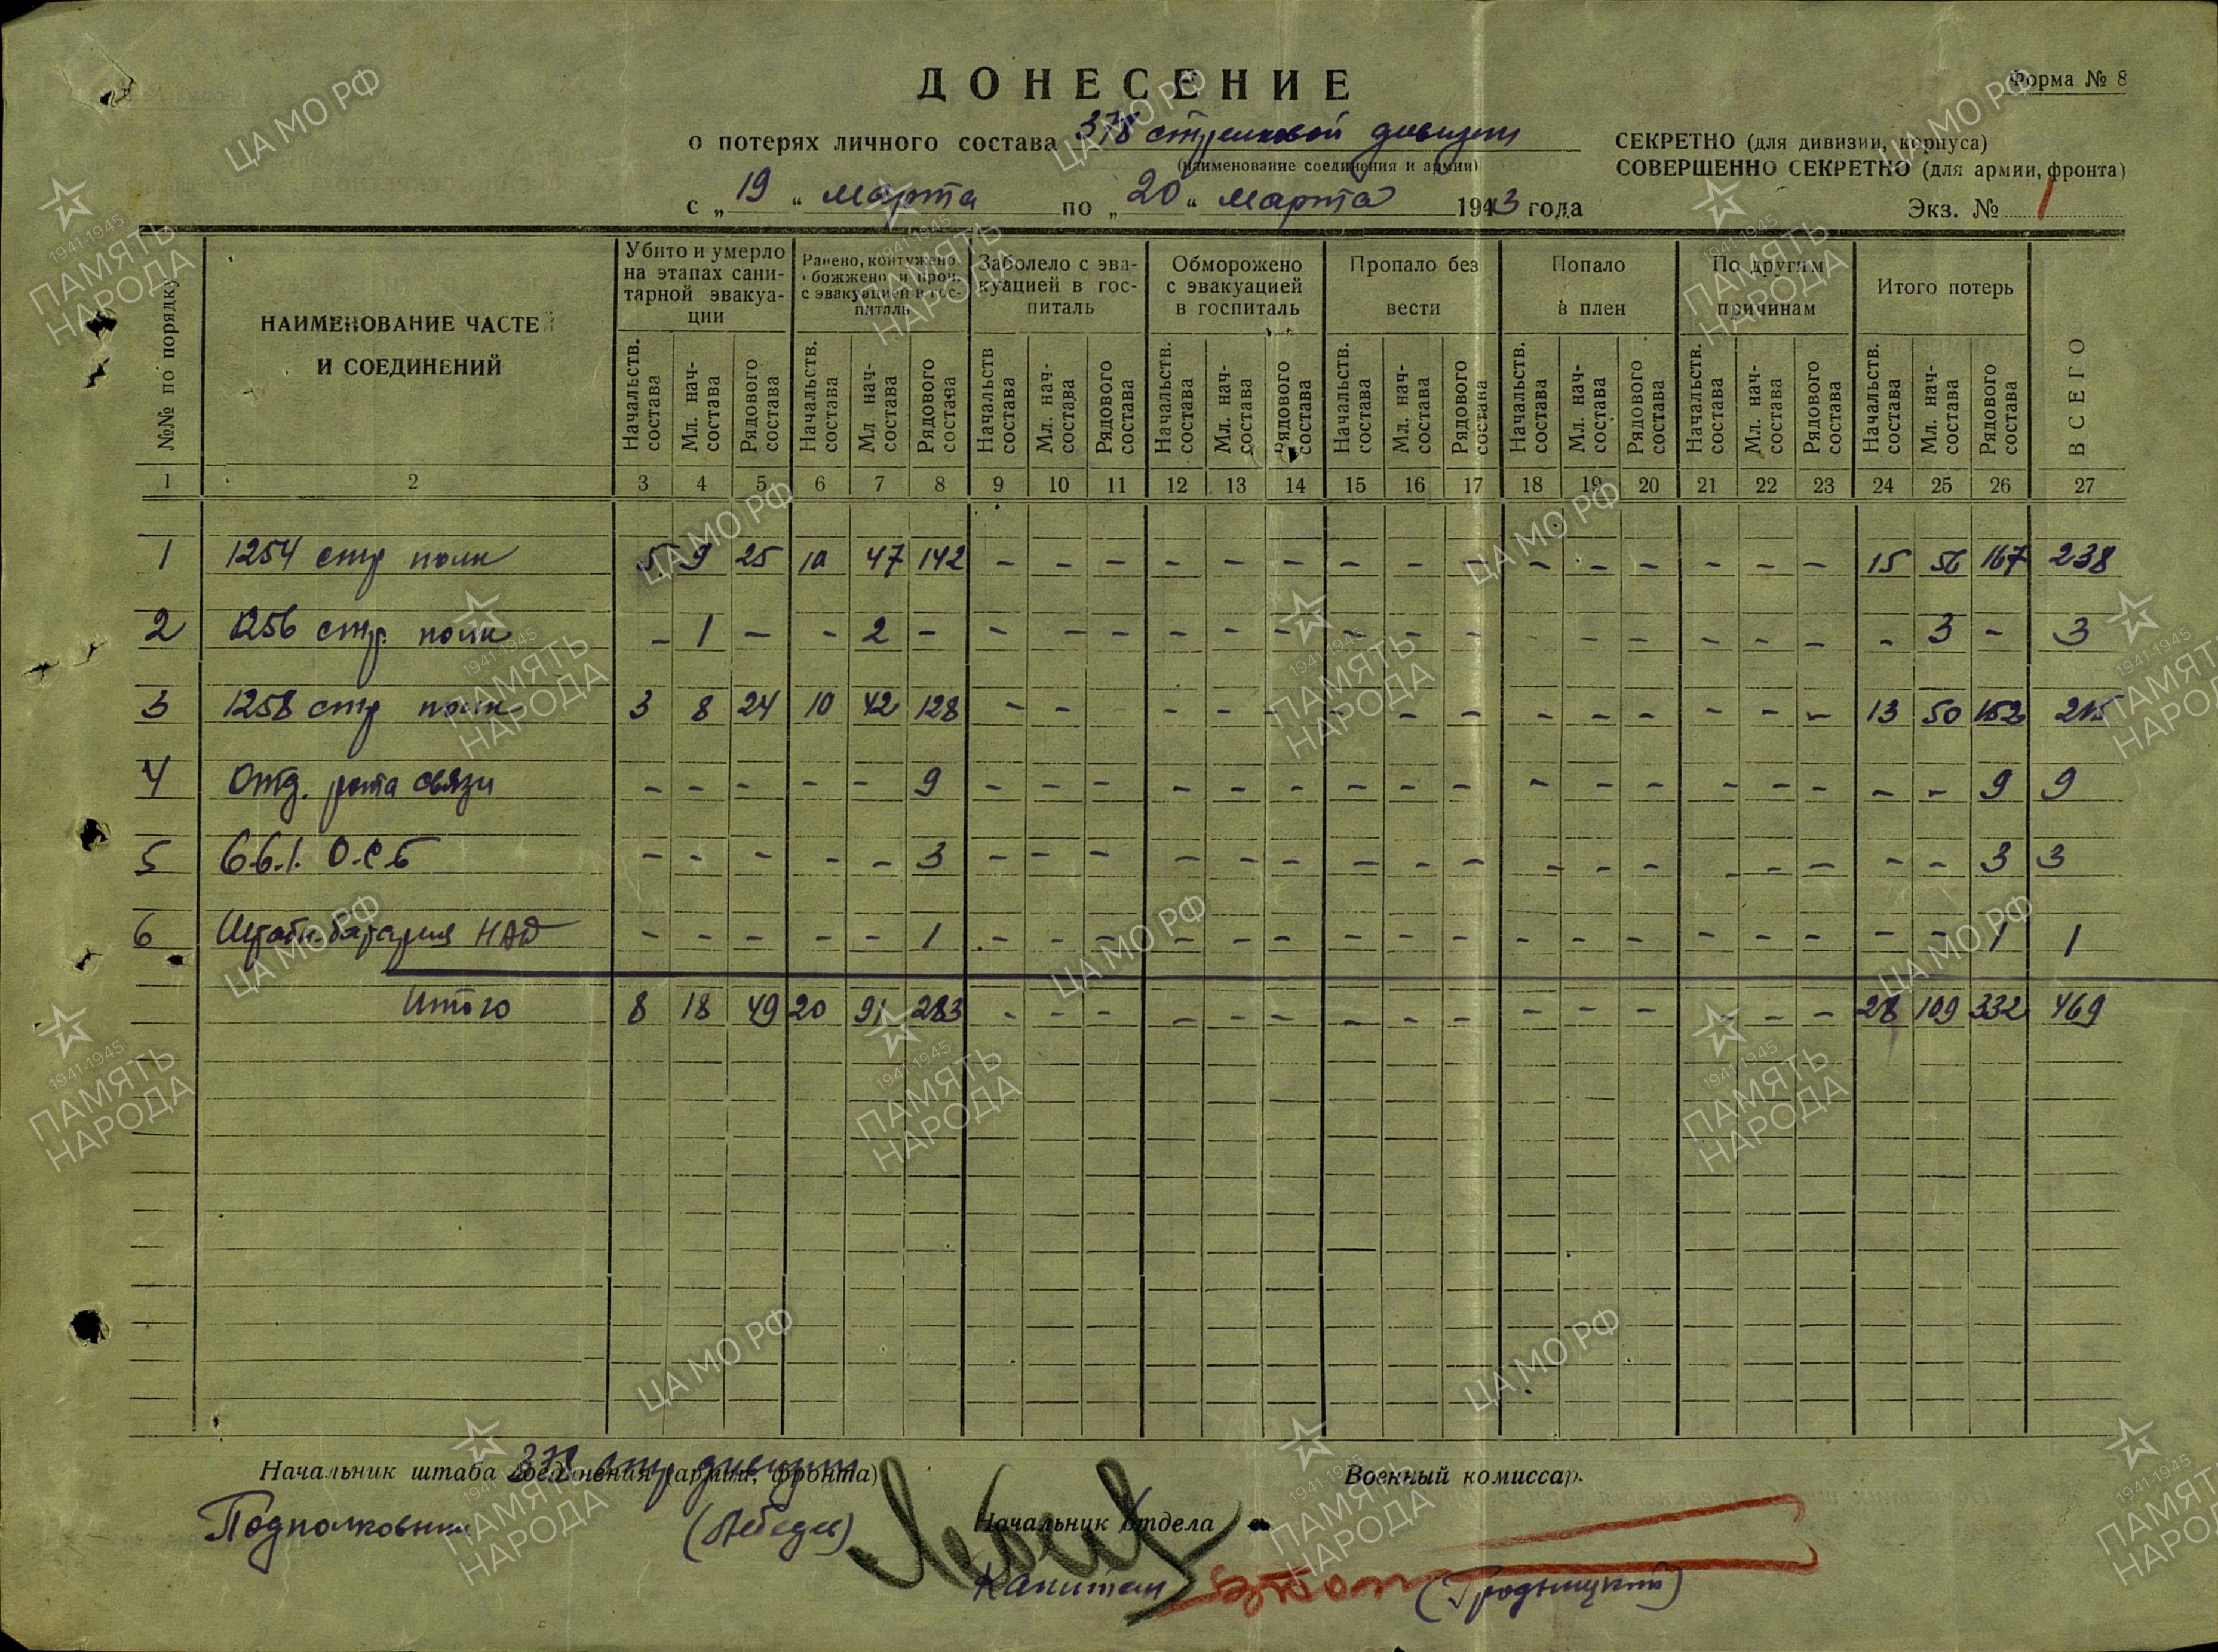 ДОНЕСЕНИЕ
Форма № 8
о потерях личного состава 378 стрелковой дивизии
(наименование соединения и армии)
СЕКРЕТНО (для дивизии, корпуса)
СОВЕРШЕННО СЕКРЕТНО (для армии, фронта)
с „ 19 “ марта по „ 20 “ марта 1943 года
Экз. № 1
№№ по порядку
НАИМЕНОВАНИЕ ЧАСТЕЙ И СОЕДИНЕНИЙ
Убито и умерло на этапах санитарной эвакуации
Ранено, контужено, обожжено и проч. с эвакуацией в госпиталь
Заболело с эвакуацией в госпиталь
Обморожено с эвакуацией в госпиталь
Пропало без вести
Попало в плен
По другим причинам
Итого потерь
ВСЕГО
Начальств. состава Мл. нач- состава Рядового состава Начальств. состава Мл. нач- состава Рядового состава Начальств состава Мл. нач- состава Рядового состава Начальств. состава Мл. нач- состава Рядового состава Начальств. состава Мл. нач- состава Рядового состава Начальств. состава Мл. нач- состава Рядового состава Начальств. состава Мл. нач- состава Рядового состава Начальств. состава Мл. нач- состава Рядового состава
1 2 3 4 5 6 7 8 9 10 11 12 13 14 15 16 17 18 19 20 21 22 23 24 25 26 27
1 1254 стр полк 5 9 25 10 47 142 - - - - - - - - - - - - - - - 15 56 167 238
2 1256 стр. полк - 1 - - 2 - - - - - - - - - - - - - - - - - 3 - 3
3 1258 стр полк 3 8 24 10 42 128 - - - - - - - - - - - - - - 13 50 152 215
4 Отд. рота связи - - - - - 9 - - - - - - - - - - - - - - - - - 9 9
5 О.С.Б - - - - - 3 - - - - - - - - - - - - - - - - - 3 3
6 батарея НАД - - - - - 1 - - - - - - - - - - - - - - - - - 1 1
Итого 8 18 49 20 91 283 - - - - - - - - - - - - - - - 28 109 332 469
Начальник штаба соединения (армии, фронта)
378 стр дивизии
Военный комиссар
Подполковник (Лебедев)
Начальник отдела
Капитан (Гродницкий)
ЦА МО РФ
1941-1945
ПАМЯТЬ
НАРОДА